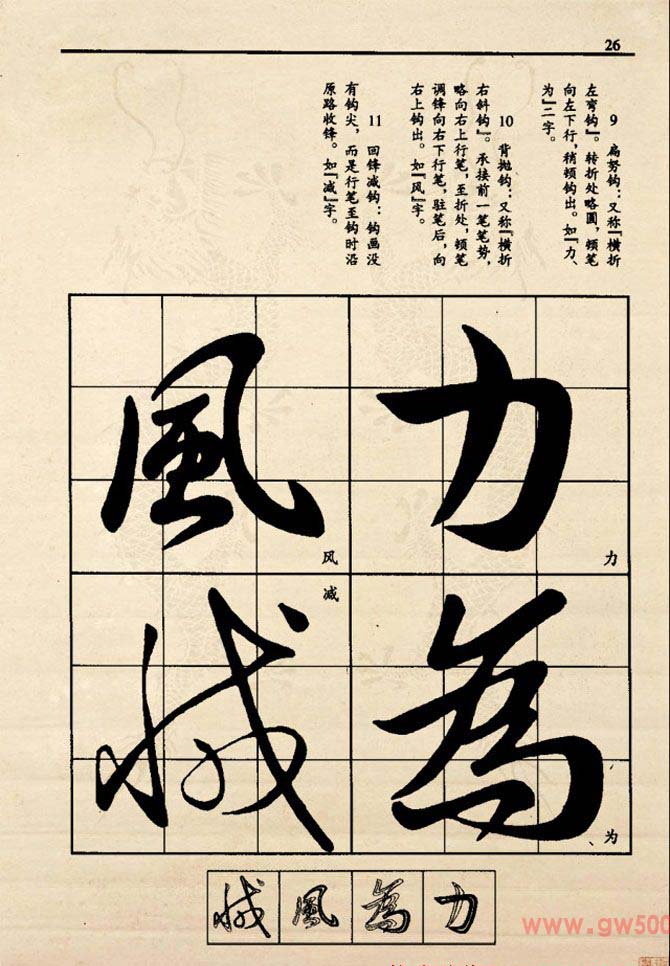 26
9 扁努钩：又称『横折
左弯钩』。转折处略圆，顿笔
向左下行，稍顿钩出。如『力、
为』二字。
10 背抛钩：又称『横折
右斜钩』。承接前一笔笔势，
略向右上行笔，至折处，顿笔
调锋向右下行笔，驻笔后，向
右上钩出。如『风』字。
11 回锋减钩：钩画没
有钩尖，而是行笔至钩时沿
原路收锋。如『减』字。
力
力
為
为
風
风
減
减
力為風減
www.gw500